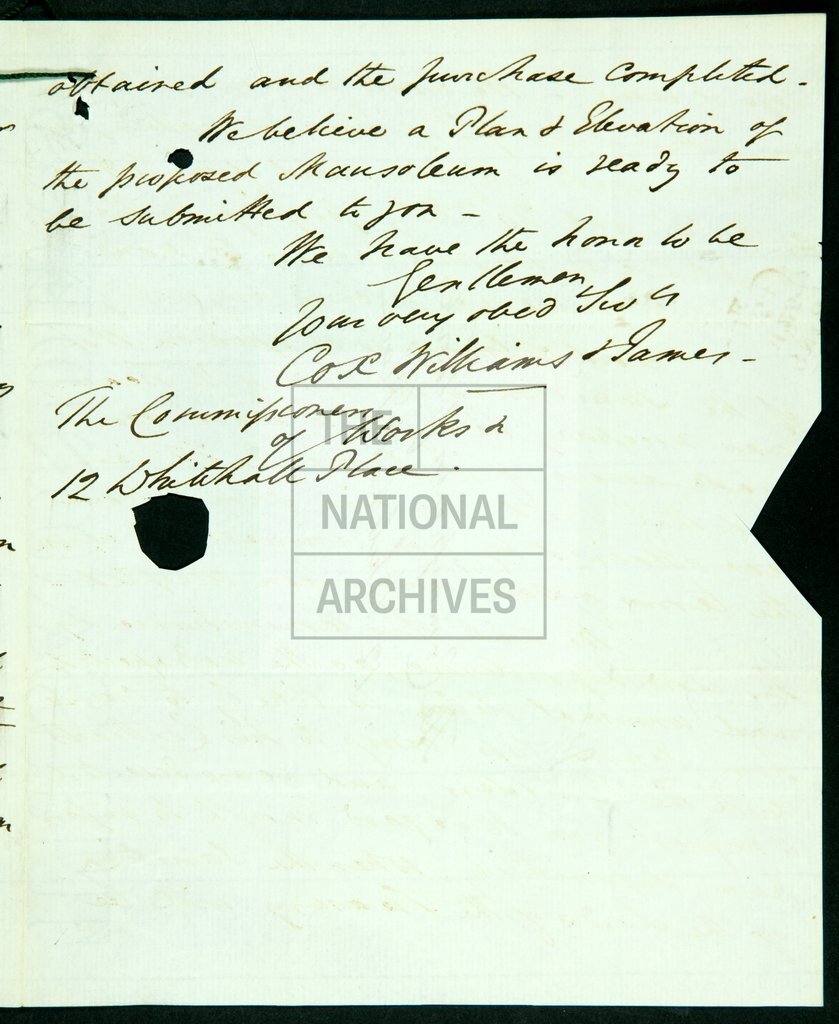 obtained and the purchase completed -
We believe a Plan & Elevation of
the proposed Mausoleum is ready to
be submitted to you -
We have the honor to be
Gentlemen
Your very obed Svts
Cox Williams & James -
The Commissioners
of Works &
12 Whitehall Place.
THE
NATIONAL
ARCHIVES